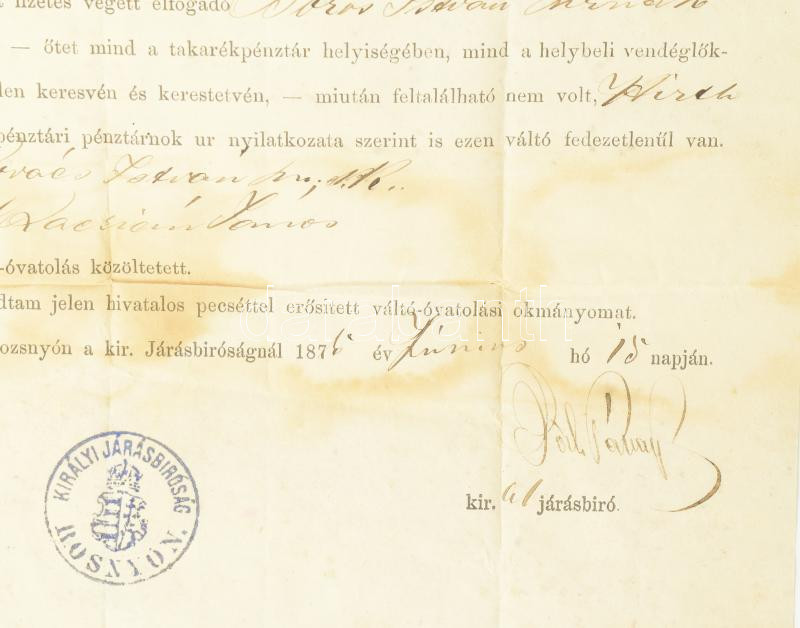 fizetés végett elfogadó Soros István
— őtet mind a takarékpénztár helyiségében, mind a helybeli vendéglők-
len keresvén és kerestetvén, — miután feltalálható nem volt, Wirth
pénztári pénztárnok ur nyilatkozata szerint is ezen váltó fedezetlenül van.
István
János
-óvatolás közöltetett.
dtam jelen hivatalos pecséttel erősített váltó-óvatolási okmányomat.
ozsnyón a kir. Járásbiróságnál 187 év Június hó 15 napján.
kir. al járásbiró.
KIRÁLYI JÁRÁSBIRÓSÁG
ROSNYÓN.
darabanth